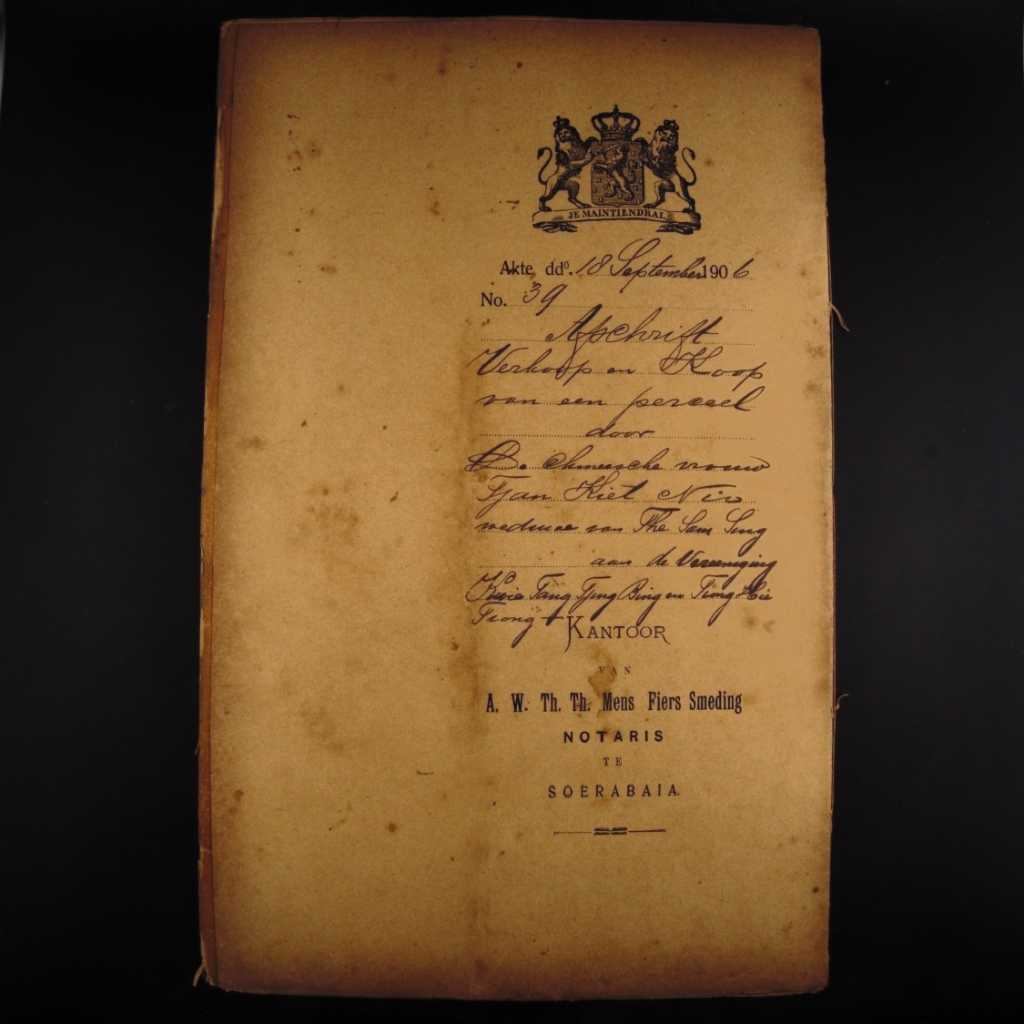 JE MAINTIENDRAI
Akte ddº. 18 September 1906
No. 39
Afschrift
Verkoop en Koop
van een perceel
door
De chineesche vrouw
Tjan Kiet Nio
weduwe van The Sam Sing
aan de Vereeniging
Kwie Tang Tjing Bing en Tiong Hie
Tiong
KANTOOR
VAN
A. W. Th. Th. Mens Fiers Smeding
NOTARIS
TE
SOERABAIA.